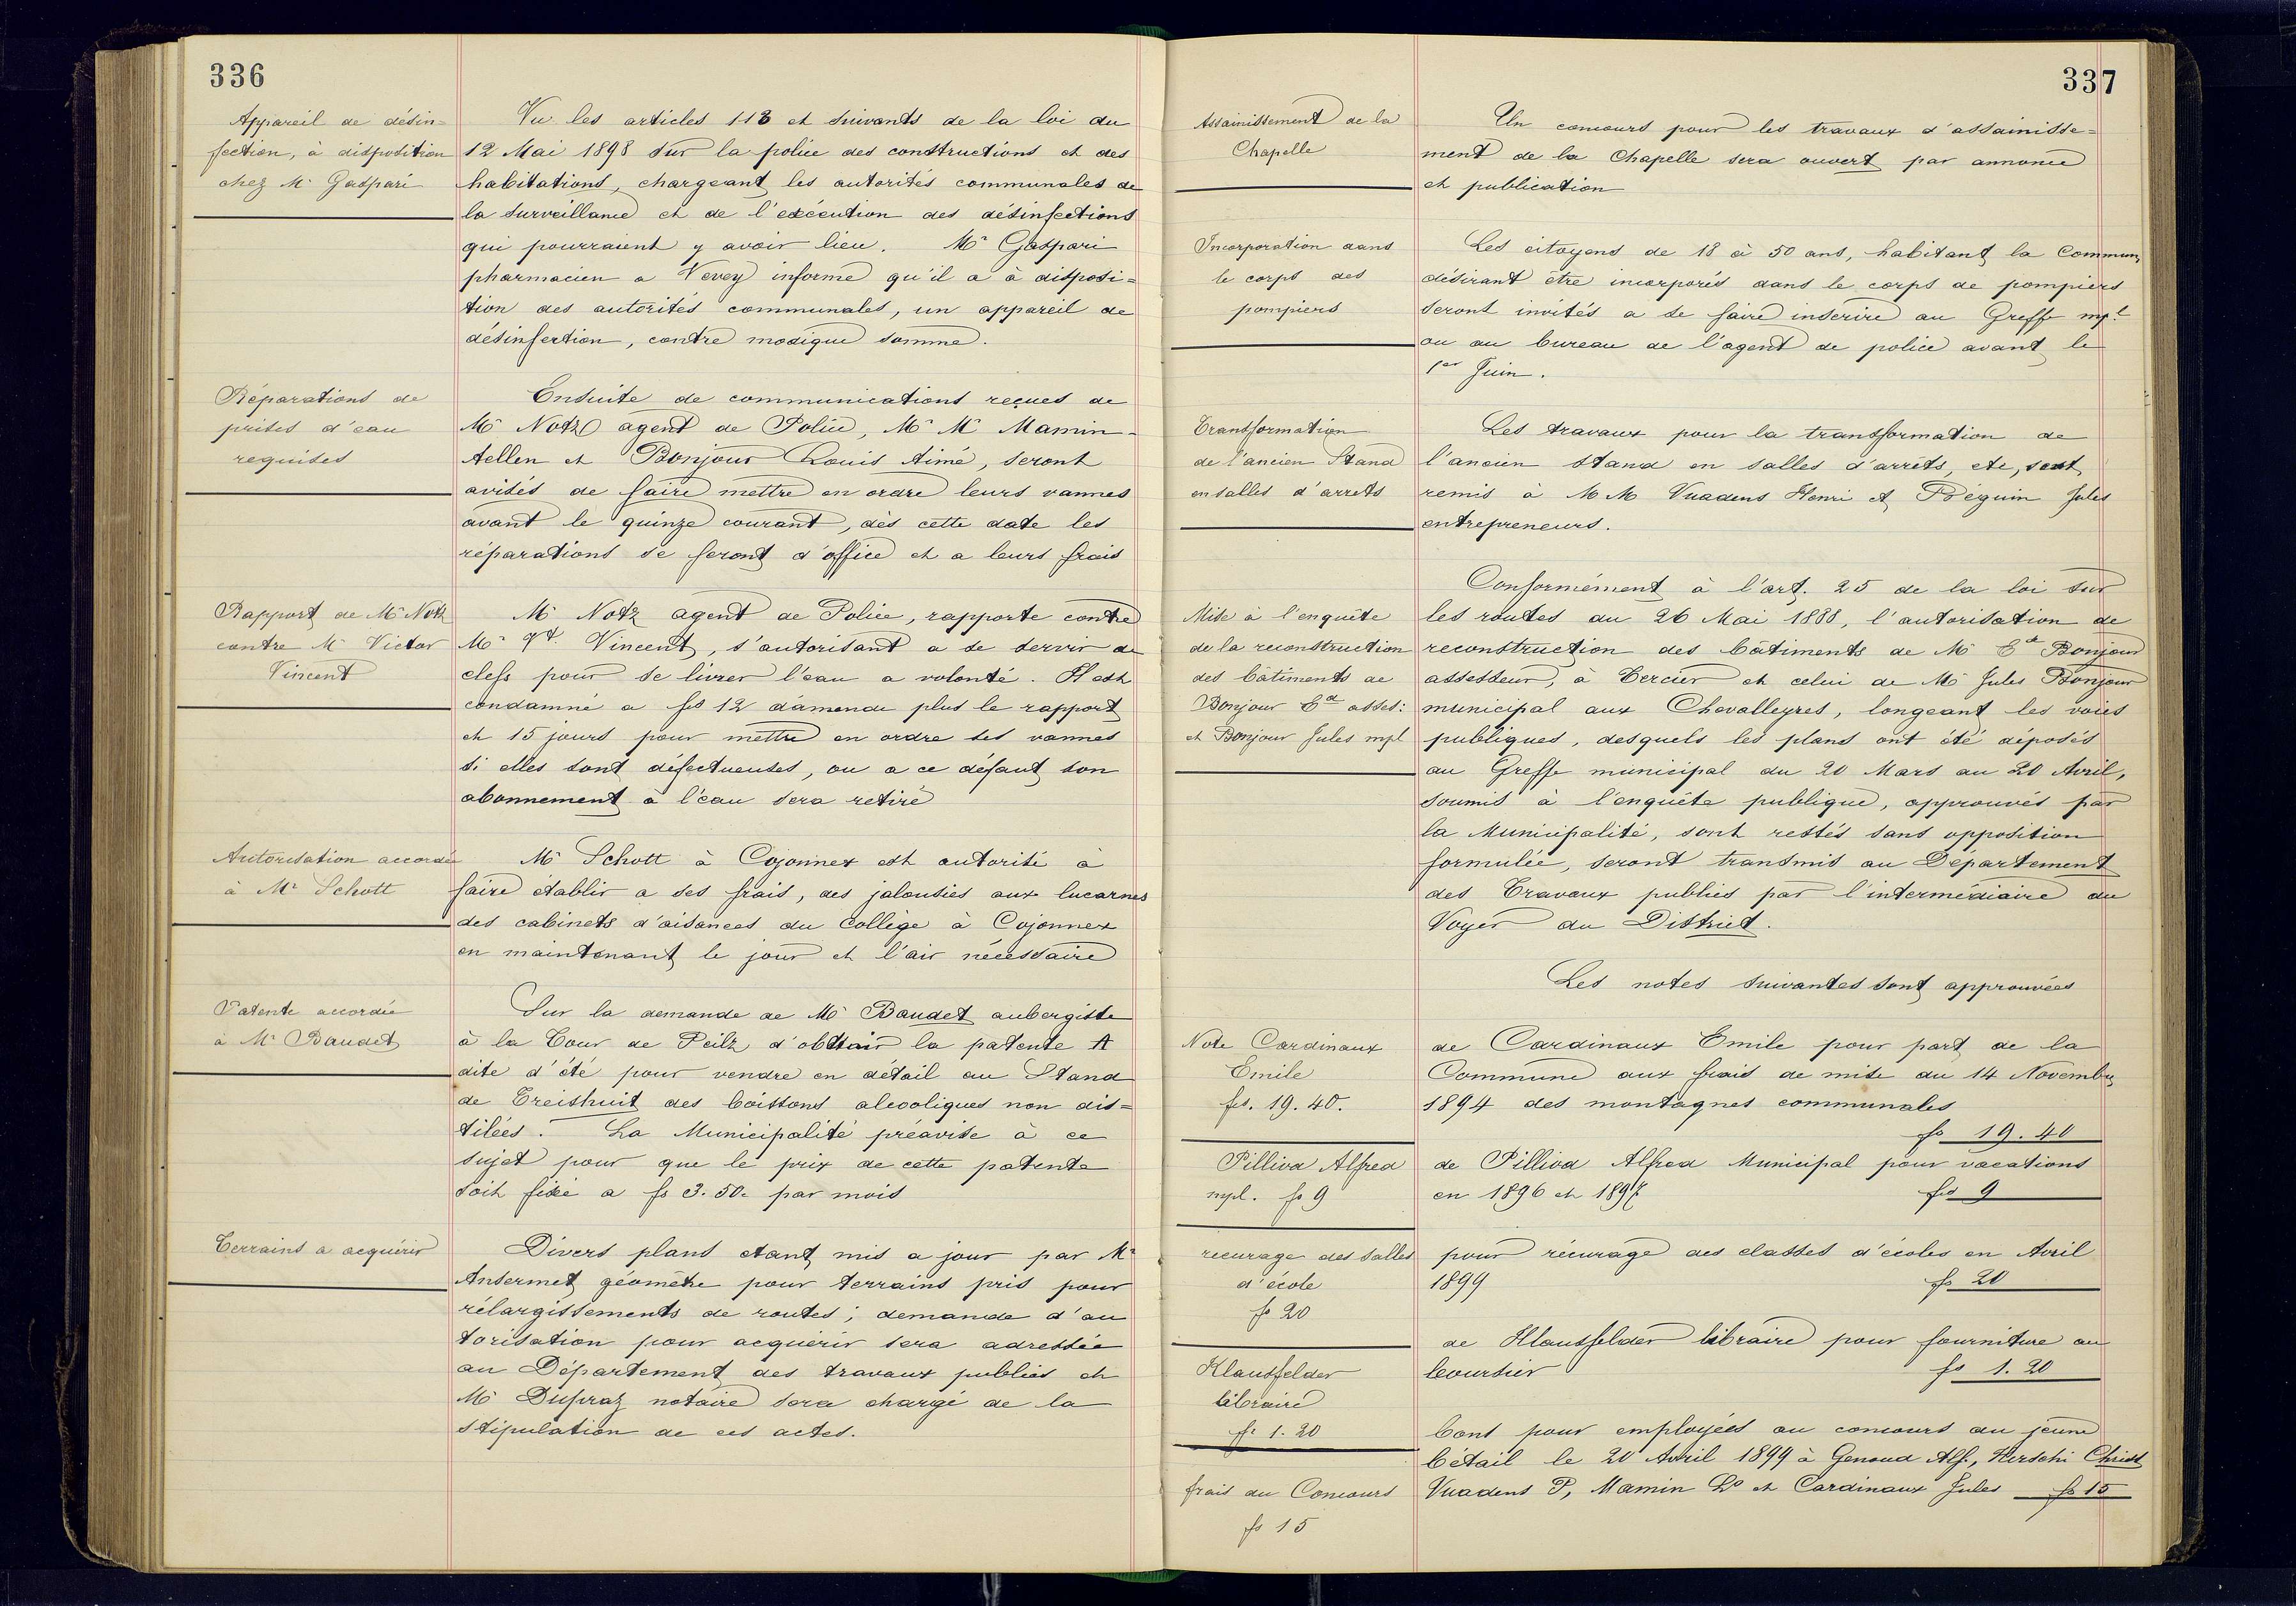 336
Appareil de désin=
fection, à disposition
chez Mr Gaspari
Vu les articles 113 et suivants de la loi du
12 Mai 1898 sur la police des constructions et des
habitations, chargeant les autorités communales de
la surveillance et de l'exécution des désinfections
qui pourraient y avoir lieu. Mr Gaspari
pharmacien a Vevey informe qu'il a à disposi=
tion des autorités communales, un appareil de
désinfection, contre modique somme.
Réparations de
prises d'eau
requises
Ensuite de communications reçues de
Mr Notz agent de Police, Mr Mr Mamin-
Aellen et Bonjour Louis Aimé, seront
avisés de faire mettre en ordre leurs vannes
avant le quinze courant, dès cette date les
réparations se feront d'office et a leurs frais
Rapport de Mr Notz
contre Mr Victor
Vincent
Mr Notz agent de Police, rapporte contre
Mr Vt. Vincent, s'autorisant a se servir de
clefs pour se livrer l'eau a volonté. Il est
condamné a frs 12 d'amende plus le rapport
et 15 jours pour mettre en ordre ses vannes
si elles sont défectueuses, ou a ce défaut son
abonnement à l'eau sera retiré
Autorisation accordée
à Mr Schott
Mr Schott à Cojonnex est autorisé à
faire établir a ses frais, des jalousies aux lucarnes
des cabinets d'aisances du Collège à Cojonnex
en maintenant le jour et l'air nécessaire
Patente accordée
à Mr Baudet
Sur la demande de Mr Baudet aubergiste
à la Tour de Peilz d'obtenir la patente A
dite d'été pour vendre en détail au Stand
de Treishuit des boissons alcooliques non dis=
tilées. La Municipalité préavise à ce
sujet pour que le prix de cette patente
soit fixé a fs 3.50. par mois
Terrains a acquérir
Divers plans etant mis a jour par Mr
Ansermet géomètre pour terrains pris pour
rélargissements de routes; demande d'au
torisation pour acquérir sera adressée
au Département des travaux publics et
Mr Dupraz notaire sera chargé de la
stipulation de ces actes.
337
Assainissement de la
Chapelle
Un concours pour les travaux d'assainisse=
ment de la Chapelle sera ouvert par annonce
et publication
Incorporation dans
le corps des
pompiers
Les citoyens de 18 à 50 ans, habitant la Commune
désirant être incorporés dans le corps de pompiers
seront invités a se faire inscrire au Greffe mpl
ou au bureau de l'agent de police avant le
1er Juin.
Transformation
de l'ancien Stand
en salles d'arrets
Les travaux pour la transformation de
l'ancien stand en salles d'arrêts, etc, sont
remis à MM Vuadens Henri et Béguin Jules
entrepreneurs.
Mise à l'enquête
de la reconstruction
des bâtiments de
Bonjour Ed asses:
et Bonjour Jules mpl
Conformément à l'art. 25 de la loi sur
les routes du 26 Mai 1888, l'autorisation de
reconstruction des bâtiments de Mr Ed Bonjour
assesseur, à Tercier et celui de Mr Jules Bonjour
municipal aux Chevalleyres, longeant les voies
publiques, desquels les plans ont été déposés
au Greffe municipal du 20 Mars au 20 Avril,
soumis à l'enquête publique, approuvés par
la Municipalité, sont restés sans opposition
formulée, seront transmis au Département
des Travaux publics par l'intermédiaire du
Voyer du District.
Les notes suivantes sont approuvées
Note Cardinaux
Emile
frs. 19.40.
de Cardinaux Emile pour part de la
Commune aux frais de mise du 14 Novembre
1894 des montagnes communales
fs 19.40
Pilliod Alfred
mpl. fs 9
de Pilliod Alfred Municipal pour vacations
en 1896 et 1897 frs 9
recurage des salles
d'école
fs 20
pour récurage des classes d'écoles en Avril
1899 fs 20
Klausfelder
libraire
fr 1.20
de Klausfelder libraire pour fourniture au
boursier fs 1.20
frais du Concours
fs 15
bons pour employés au concours du jeune
bétail le 20 Avril 1899 à Genoud Alf., Hirschi Christ
Vuadens P, Mamin Ls et Cardinaux Jules fs 15